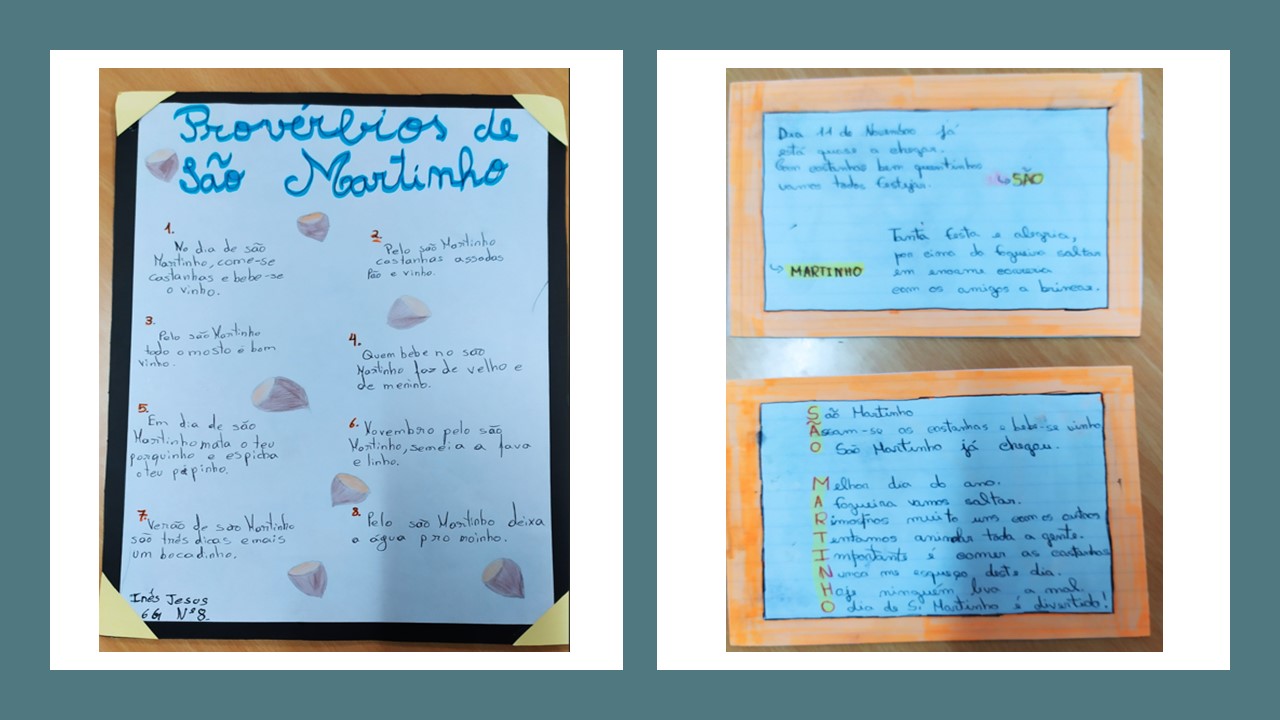 Provérbios de
São Martinho
1.
No dia de são
Martinho, come-se
castanhas e bebe-se
o vinho.
2.
Pelo são Martinho
castanhas assadas
Pão e vinho.
3.
Pelo são Martinho
todo o mosto é bom
vinho.
4.
Quem bebe no são
Martinho faz de velho e
de menino.
5.
Em dia de são
Martinho mata o teu
porquinho e espicha
o teu pipinho.
6. Novembro pelo são
Martinho, semeia a fava
e linho.
7. Verão de são Martinho
são três dias e mais
um bocadinho.
8. Pelo são Martinho deixa
a água pro moinho.
Inês Jesus
6G Nº8.
Dia 11 de Novembro já
está quase a chegar.
Com castanhas bem quentinhas
vamos todos festejar.
SÃO
Tanta festa e alegria,
por cima da fogueira saltar
em enorme correria
com os amigos a brincar.
MARTINHO
São Martinho
Assam-se as castanhas e bebe-se vinho
O São Martinho já chegou.
Melhor dia do ano.
A fogueira vamos saltar.
Rimo-nos muito uns com os outros
Tentamos animar toda a gente.
Importante é comer as castanhas
Nunca me esqueço deste dia.
Hoje ninguém leva a mal.
O dia de S. Martinho é divertido!